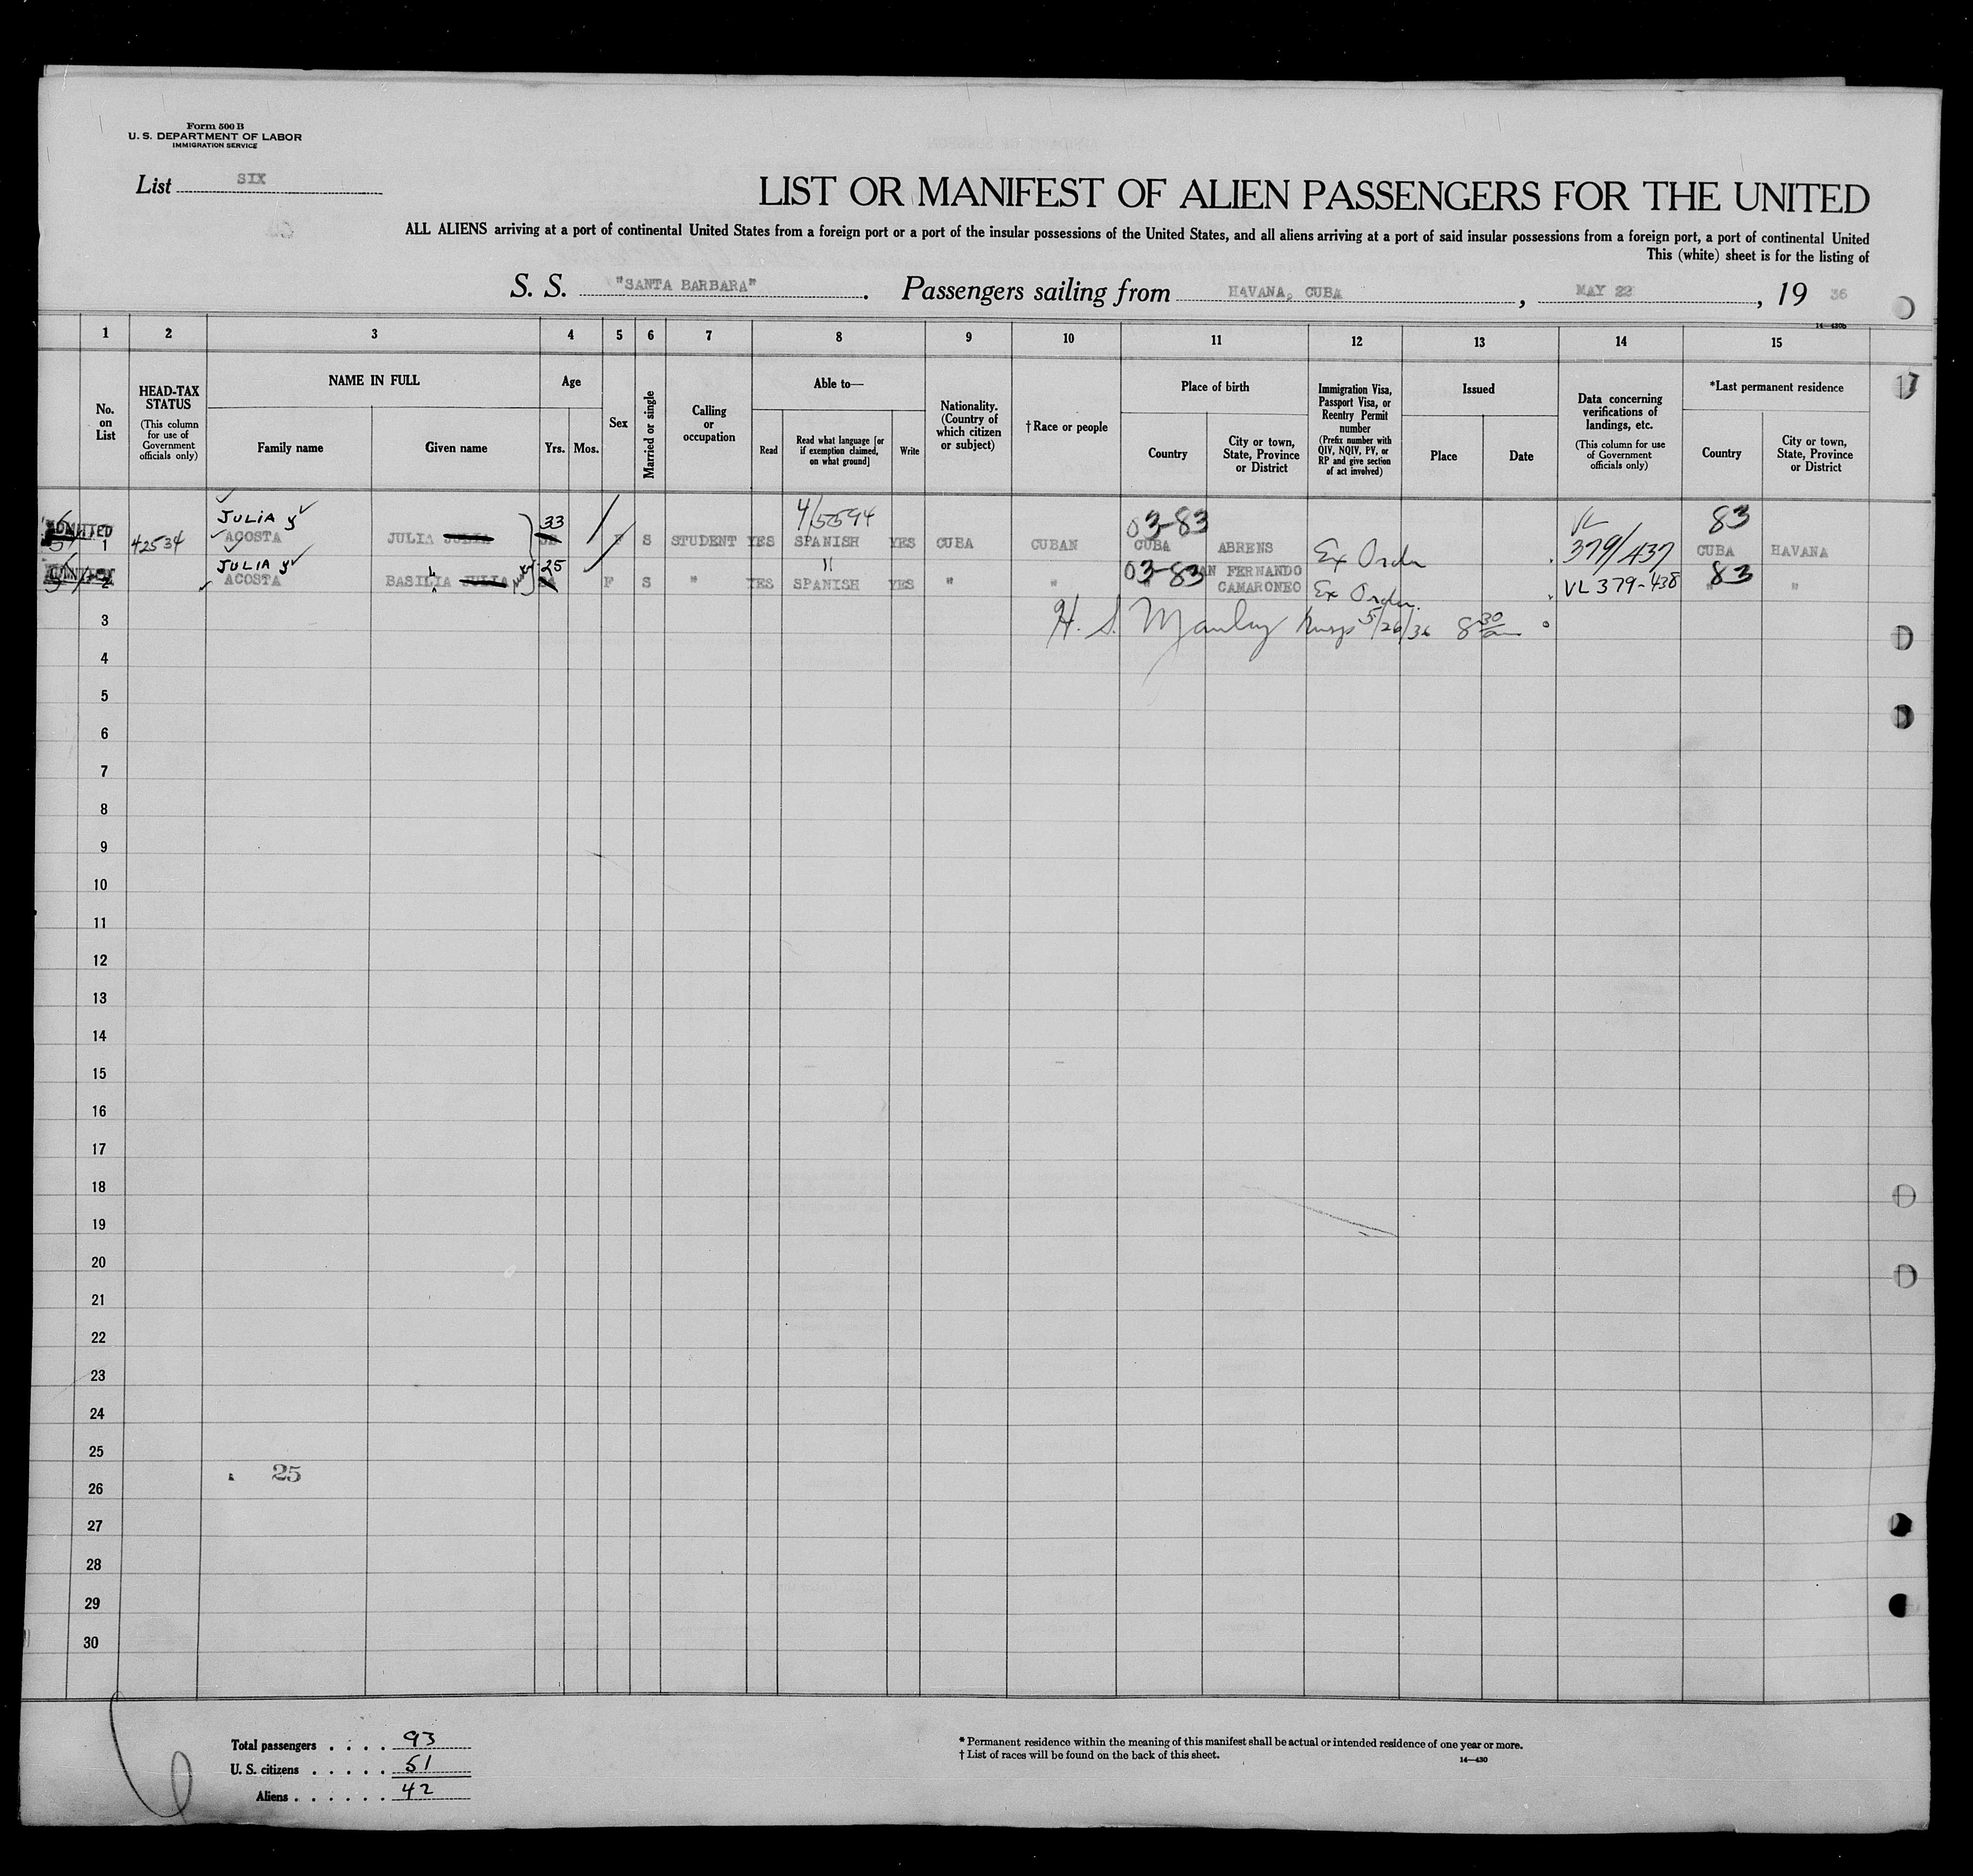 Form 500 B
U. S. DEPARTMENT OF LABOR
IMMIGRATION SERVICE
List SIX
LIST OR MANIFEST OF ALIEN PASSENGERS FOR THE UNITED
ALL ALIENS arriving at a port of continental United States from a foreign port or a port of the insular possessions of the United States, and all aliens arriving at a port of said insular possessions from a foreign port, a port of continental United
This (white) sheet is for the listing of
S. S. "SANTA BARBARA". Passengers sailing from HAVANA, CUBA, MAY 22, 19 36
14—430b
1 2 3 4 5 6 7 8 9 10 11 12 13 14 15
No. on List
HEAD-TAX STATUS
(This column for use of Government officials only)
NAME IN FULL
Family name
Given name
Age
Yrs. Mos.
Sex
Married or single
Calling or occupation
Able to—
Read
Read what language [or if exemption claimed, on what ground]
Write
Nationality. (Country of which citizen or subject)
† Race or people
Place of birth
Country
City or town, State, Province or District
Immigration Visa, Passport Visa, or Reentry Permit number
(Prefix number with QIV, NQIV, PV, or RP and give section of act involved)
Issued
Place
Date
Data concerning verifications of landings, etc.
(This column for use of Government officials only)
*Last permanent residence
Country
City or town, State, Province or District
17
JULIA y 33 4/5594 03-83 VL 83
ADMITTED 1 42534 ACOSTA JULIA F S STUDENT YES SPANISH YES CUBA CUBAN CUBA ABRENS Ex Order 379/437 CUBA HAVANA
JULIA y 25 " 03-83 SAN FERNANDO 83
2 ACOSTA BASILIA F S " YES SPANISH YES " " " CAMARONEO Ex Order VL 379-438 " "
3 H. S. Manley Insp 5/26/36 8 30 am
4
5
6
7
8
9
10
11
12
13
14
15
16
17
18
19
20
21
22
23
24
25
25
26
27
28
29
30
Total passengers . . . . 93
U. S. citizens . . . . . 51
Aliens . . . . . . 42
* Permanent residence within the meaning of this manifest shall be actual or intended residence of one year or more.
† List of races will be found on the back of this sheet.
14—430